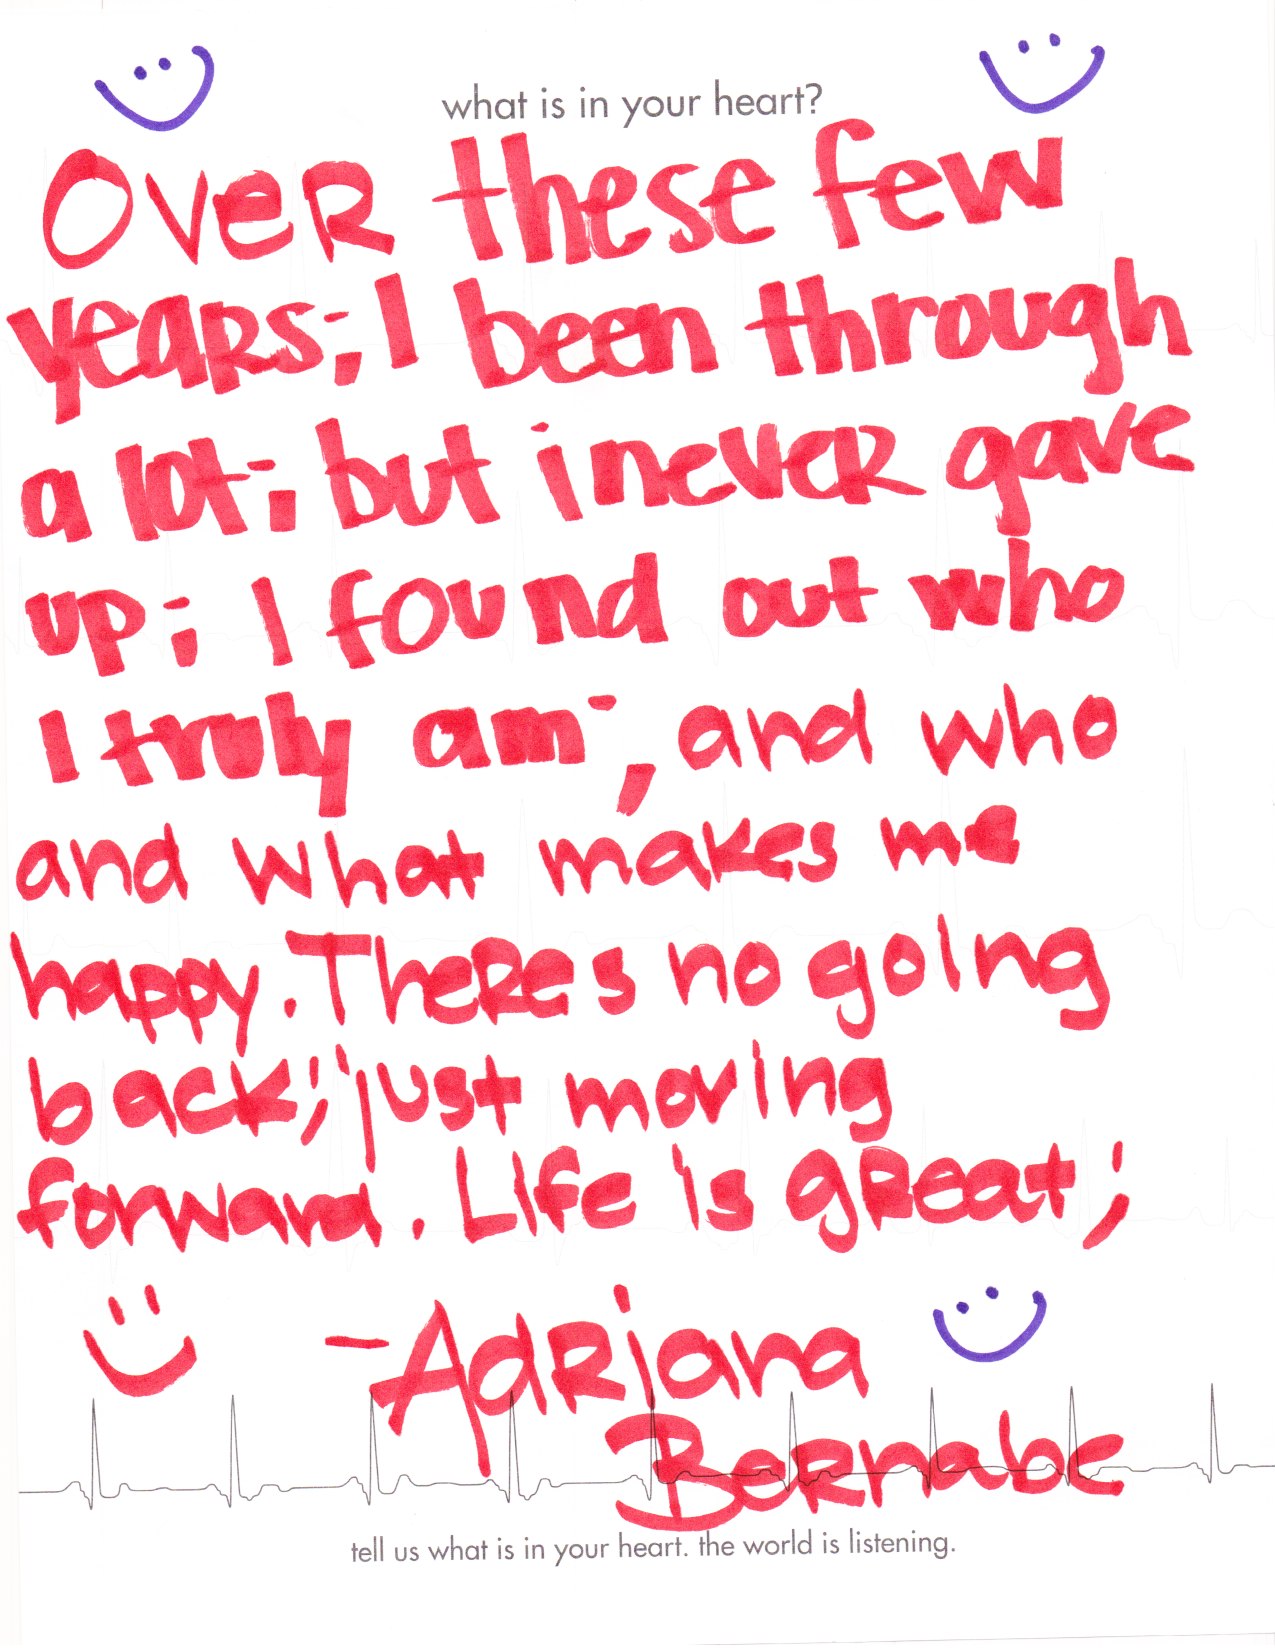 what is in your heart?
Over these few
years; I been through
a lot; but i never gave
up; I found out who
I truly am; and who
and what makes me
happy. Theres no going
back; just moving
forward. Life is great;
-Adriana
Bernabe
tell us what is in your heart. the world is listening.